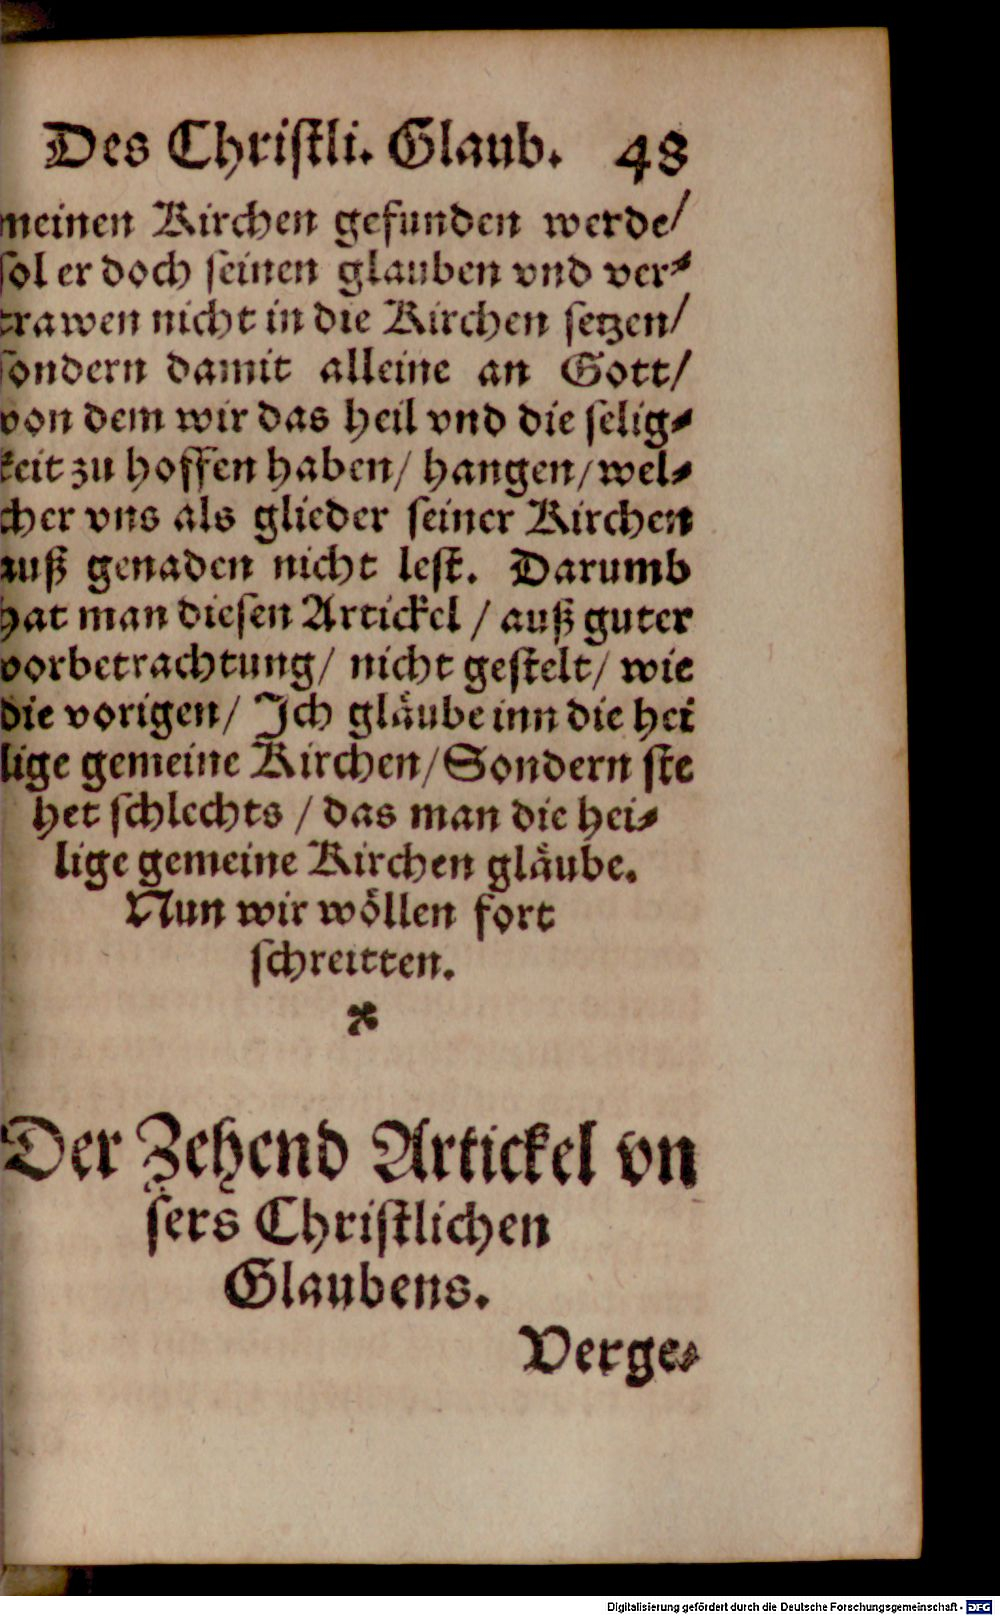 Des Christli. Glaub. 48
meinen Kirchen gefunden werde/
sol er doch seinen glauben vnd ver⸗
trawen nicht in die Kirchen setzen/
sondern damit alleine an Gott/
von dem wir das heil vnd die selig⸗
keit zu hoffen haben/ hangen/ wel⸗
cher vns als glieder seiner Kirchen
auß genaden nicht lest. Darumb
hat man diesen Artickel / auß guter
vorbetrachtung/ nicht gestelt/ wie
die vorigen/ Ich glaͤube inn die hei
lige gemeine Kirchen/ Sondern ste
het schlechts / das man die hei⸗
lige gemeine Kirchen glaͤube.
Nun wir woͤllen fort
schreitten.
Der Zehend Artickel vn
sers Christlichen
Glaubens.
Verge⸗
Digitalisierung gefördert durch die Deutsche Forschungsgemeinschaft - DFG